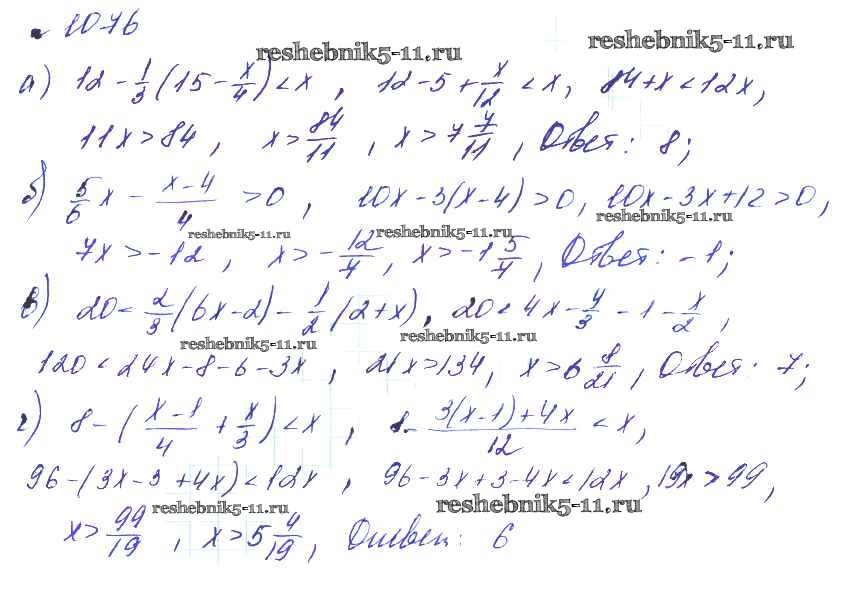 № 1076
reshebnik5-11.ru reshebnik5-11.ru
а) 12 - 1/3 (15 - x/4) < x, 12 - 5 + x/12 < x, 84 + x < 12x,
11x > 84, x > 84/11, x > 7 7/11, Ответ: 8;
б) 5/6 x - (x-4)/4 > 0, 10x - 3(x-4) > 0, 10x - 3x + 12 > 0,
reshebnik5-11.ru reshebnik5-11.ru reshebnik5-11.ru
7x > -12, x > -12/7, x > -1 5/7, Ответ: -1;
в) 20 < 2/3 (6x-2) - 1/2 (2+x), 20 < 4x - 4/3 - 1 - x/2,
reshebnik5-11.ru reshebnik5-11.ru
120 < 24x - 8 - 6 - 3x, 21x > 134, x > 6 8/21, Ответ: 7;
г) 8 - ((x-1)/4 + x/3) < x, 8 - (3(x-1)+4x)/12 < x,
96 - (3x - 3 + 4x) < 12x, 96 - 3x + 3 - 4x < 12x, 19x > 99,
reshebnik5-11.ru reshebnik5-11.ru
x > 99/19, x > 5 4/19, Ответ: 6